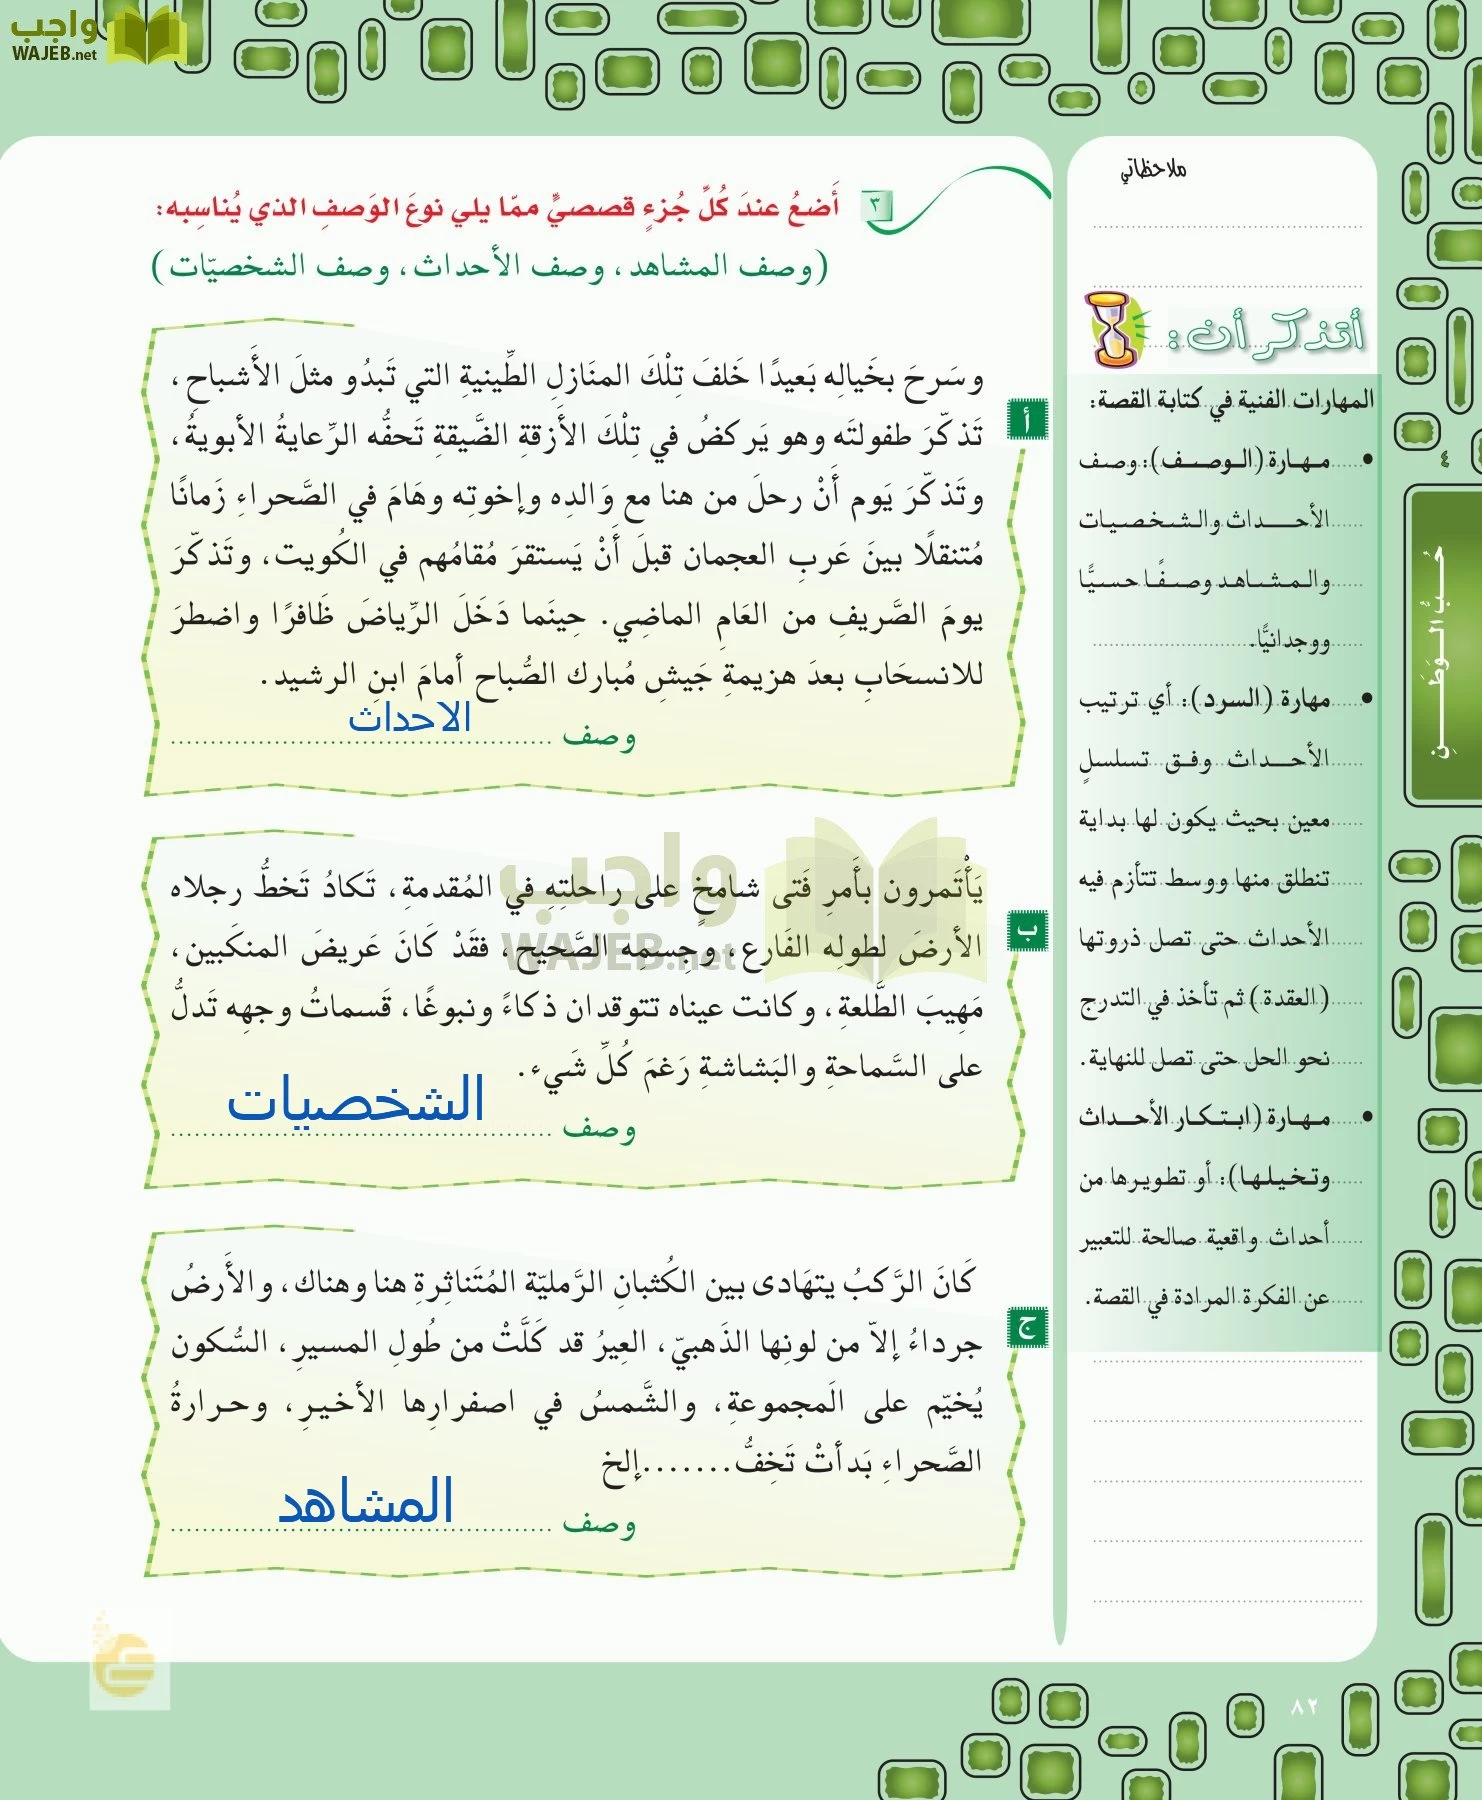 واجب
WAJEB.net
٣ أَضعُ عندَ كُلِّ جُزءٍ قصصيٍّ ممّا يلي نوعَ الوَصفِ الذي يُناسِبه:
(وصف المشاهد، وصف الأحداث، وصف الشخصيّات)
أ
وسَرحَ بخَيالِه بَعيدًا خَلفَ تِلْكَ المنَازلِ الطِّينيةِ التي تَبدُو مثلَ الأشباحِ،
تَذكّرَ طفولتَه وهو يَركضُ في تِلْكَ الأَزقةِ الضَّيقةِ تَحفُّه الرِّعايةُ الأبويةُ،
وتَذكّرَ يَوم أَنْ رحلَ من هنا مع وَالدِه وإخوتِه وهَامَ في الصَّحراءِ زَمانًا
مُتنقلًا بينَ عَربِ العجمان قبلَ أَنْ يَستقرَ مُقامُهم في الكُويت، وتَذكّرَ
يومَ الصَّريفِ من العَامِ الماضِي. حِينَما دَخَلَ الرِّياضَ ظَافرًا واضطرَ
للانسحَابِ بعدَ هزيمةِ جَيشِ مُبارك الصُّباح أمامَ ابنِ الرشيد.
وصف الاحداث
ب
يَأْتَمرون بأَمرِ فَتى شامخٍ على راحلتِهِ في المُقدمةِ، تَكادُ تَخطُّ رجلاه
الأرضَ لطولِه الفَارع، وجِسمِه الصَّحيح، فقَدْ كَانَ عَريضَ المنكَبين،
مَهِيبَ الطَّلعةِ، وكانت عيناه تتوقدان ذكاءً ونبوغًا، قَسماتُ وجهِه تَدلُّ
على السَّماحةِ والبَشاشةِ رَغمَ كُلِّ شَيء.
وصف الشخصيات
واجب
WAJEB.net
ج
كَانَ الرَّكبُ يتهَادى بين الكُثبانِ الرَّمليّة المُتَناثِرةِ هنا وهناك، والأَرضُ
جرداءُ إلاّ من لونِها الذَهبيّ، العِيرُ قد كَلَّتْ من طُولِ المسيرِ، السُّكون
يُخيّم على المَجموعةِ، والشَّمسُ في اصفرارِها الأخيرِ، وحرارةُ
الصَّحراءِ بَدأتْ تَخِفُّ.......إلخ
وصف المشاهد
ملاحظاتي
أتذكر أن:
المهارات الفنية في كتابة القصة:
• مهارة (الوصف): وصف
الأحداث والشخصيات
والمشاهد وصفًا حسيًّا
ووجدانيًّا.
• مهارة (السرد): أي ترتيب
الأحداث وفق تسلسلٍ
معين بحيث يكون لها بداية
تنطلق منها ووسط تتأزم فيه
الأحداث حتى تصل ذروتها
(العقدة) ثم تأخذ في التدرج
نحو الحل حتى تصل للنهاية.
• مهارة (ابتكار الأحداث
وتخيلها): أو تطويرها من
أحداث واقعية صالحة للتعبير
عن الفكرة المرادة في القصة.
٤
حُبُّ الوَطَنِ
٨٢